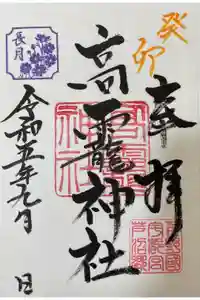 癸卯
奉拝
高龗神社
長月
令和五年九月 日